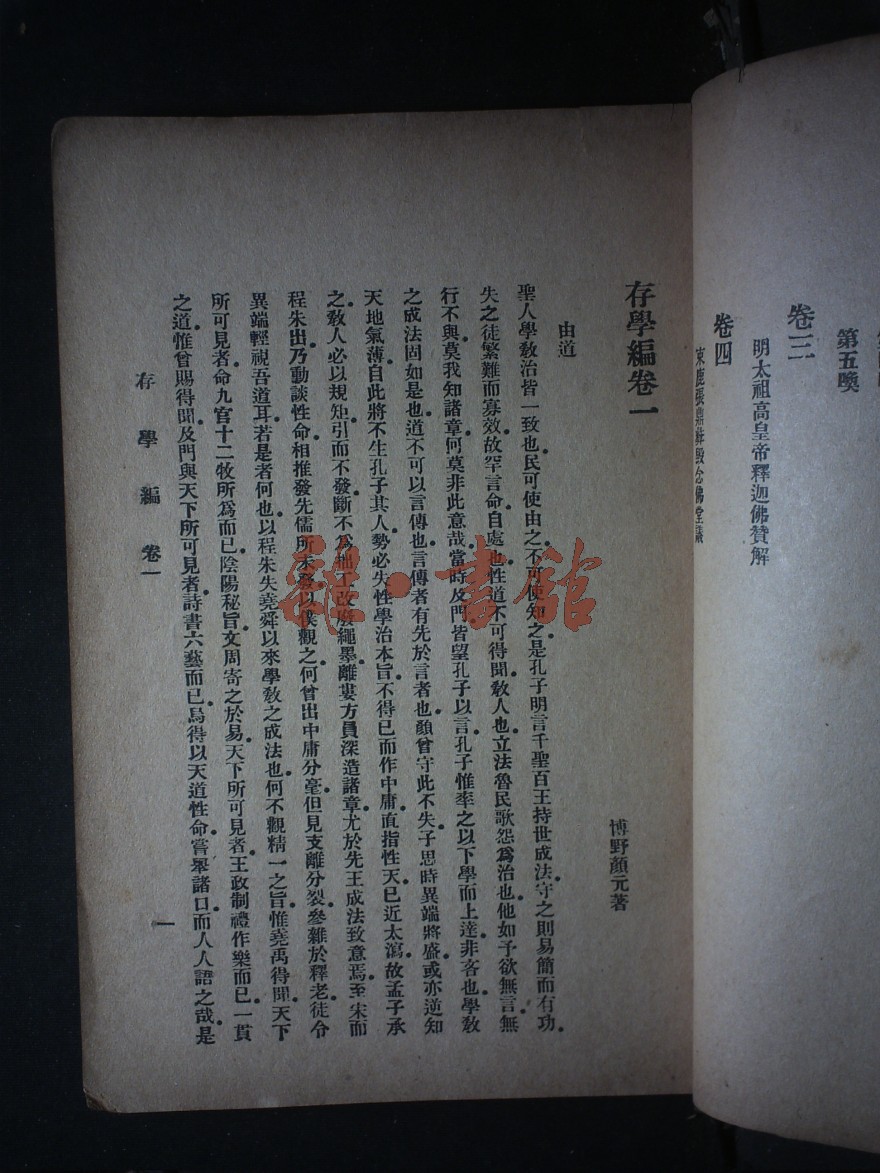 第五喚
卷三
明太祖高皇帝釋迦佛贊解
卷四
束鹿張鼎彝毀念佛堂議
存學編卷一
博野顏元著
由道
聖人學敎治皆一致也。民可使由之。不可使知之。是孔子明言千聖百王持世成法。守之則易簡而有功。
失之徒繁難而寡效。故罕言命。自處也。性道不可得聞。敎人也。立法魯民歌怨。爲治也。他如予欲無言。無
行不與。莫我知諸章。何莫非此意哉。當時及門。皆望孔子以言。孔子惟率之以下學而上達。非吝也。學敎
之成法固如是也。道不可以言傳也。言傳者有先於言者也。顏曾守此不失。子思時異端將盛。或亦逆知
天地氣薄。自此將不生孔子其人。勢必失性學治本旨。不得已而作中庸。直指性天。已近太瀉。故孟子承
之。敎人必以規矩。引而不發。斷不爲拙工改廢繩墨。離婁方員深造諸章。尤於先王成法致意焉。至宋而
程朱出。乃動談性命。相推發先儒所未發。以僕觀之。何曾出中庸分毫。但見支離分裂。參雜於釋老。徒令
異端輕視吾道耳。若是者何也。以程朱失堯舜以來學敎之成法也。何不觀精一之旨。惟堯禹得聞。天下
所可見者。命九官十二牧所爲而已。陰陽秘旨。文周寄之於易。天下所可見者。王政制禮作樂而已。一貫
之道。惟曾賜得聞。及門與天下所可見者。詩書六藝而已。烏得以天道性命嘗舉諸口而人人語之哉。是
存學編 卷一
一